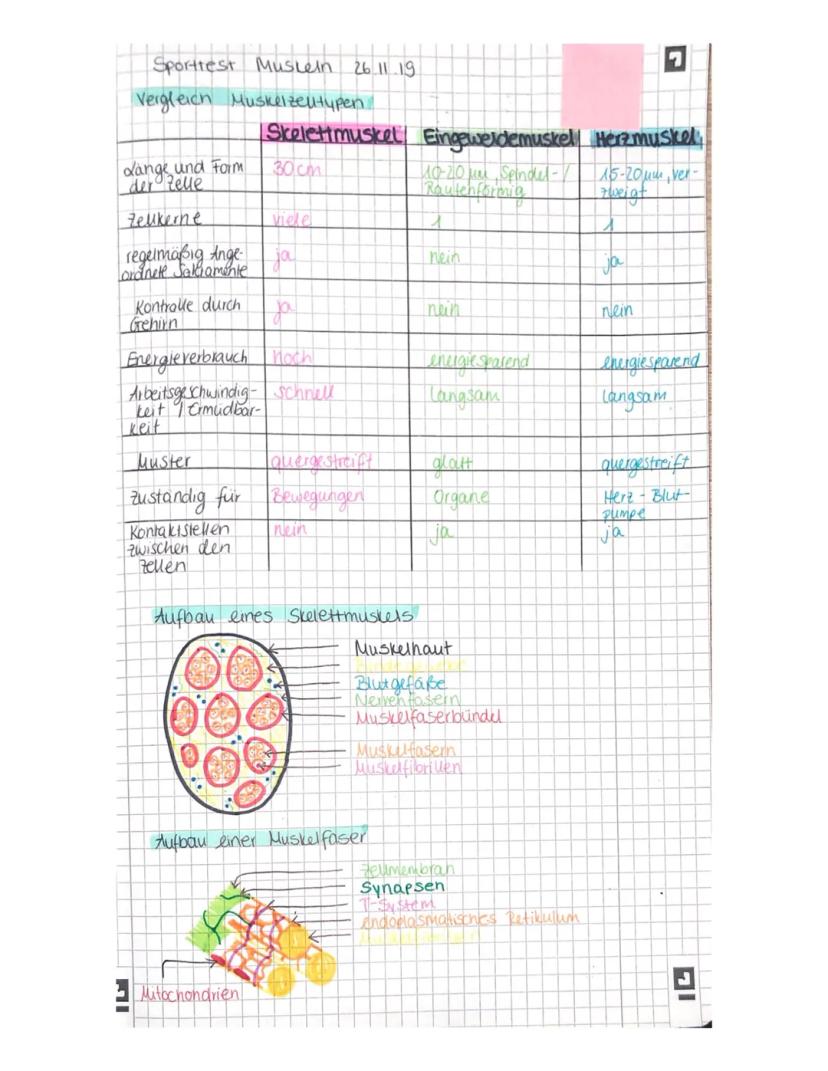 Sporttest Muskeln 26.11.19
Vergleich Muskelzelltypen
Skelettmuskel Eingeweidemuskel Herzmuskel
Länge und Form 30cm 10-20 µm, Spindel-/ 15-20µm, ver-
der Zelle Rautenförmig zweigt
Zellkerne viele 1 1
regelmäßig Ange- ja nein ja
ordnete
Kontrolle durch ja nein nein
Gehirn
Energieverbrauch hoch energiesparend energiesparend
Arbeitsgeschwindig- schnell langsam langsam
keit / Ermüdbar-
keit
Muster quergestreift glatt quergestreift
zuständig für Bewegungen Organe Herz - Blut-
pumpe
Kontaktstellen nein ja ja
zwischen den
Zellen
Aufbau eines Skelettmuskels
Muskelhaut
Blutgefäße
Nervenfasern
Muskelfaserbündel
Muskelfasern
Muskelfibrillen
Aufbau einer Muskelfaser
Zellmembran
Synapsen
T-System
endoplasmatisches Retikulum
Mitochondrien